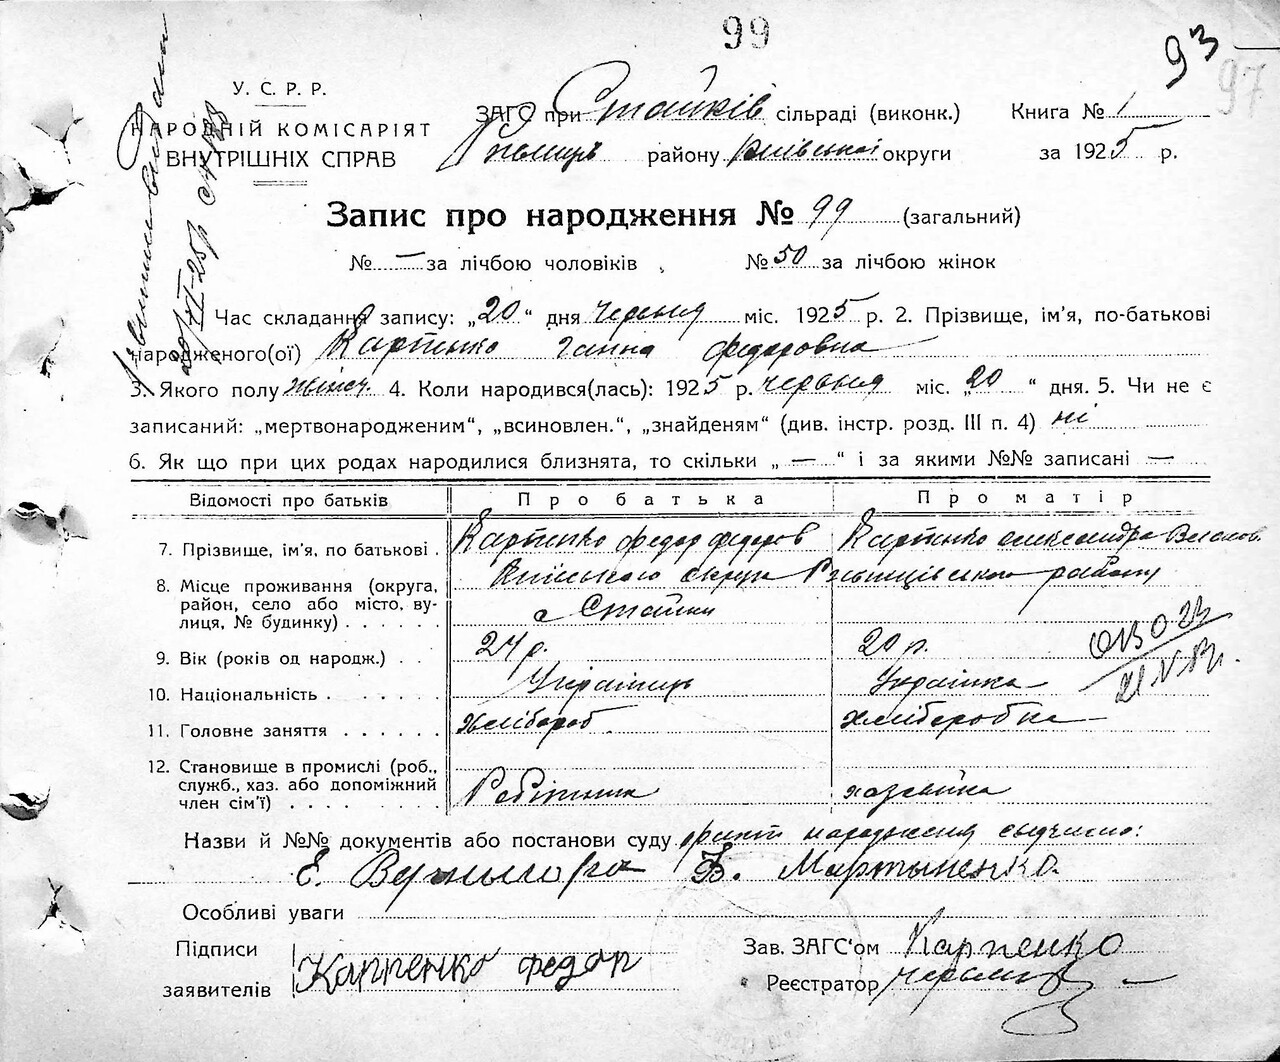 99
93
97
У. С. Р. Р.
НАРОДНІЙ КОМІСАРІЯТ
ВНУТРІШНІХ СПРАВ
ЗАГС при Стайків сільраді (виконк.)
району Київської округи
Книга № 1
за 1925 р.
Запис про народження № 99 (загальний)
№ — за лічбою чоловіків, № 50 за лічбою жінок
Час складання запису: „20“ дня червня міс. 1925 р. 2. Прізвище, ім'я, по-батькові
народженого(ої) Карпенко Ганна Федоровна
3. Якого полу жіноч. 4. Коли народився(лась): 1925 р. червня міс. „20“ дня. 5. Чи не є
записаний: „мертвонародженим“, „всиновлен.“, „знайденям“ (див. інстр. розд. III п. 4) ні
6. Як що при цих родах народилися близнята, то скільки „—“ і за якими №№ записані —
Відомості про батьків Про батька Про матір
7. Прізвище, ім'я, по батькові . Карпенко Федор Федоров Карпенко Олександра Власов.
8. Місце проживання (округа, район, село або місто, вулиця, № будинку) . . . . . . Київського округа Ржищівського району
с Стайки
9. Вік (років од народж.) . . 24 р. 20 р.
10. Національність . . . . . . Українець Українка
11. Головне заняття . . . . . . хлібороб хліборобка
12. Становище в промислі (роб., служб., хаз. або допоміжний член сім'ї) . . . . . . . Робітник хазяйка
Назви й №№ документів або постанови суду факт народження свідчимо:
Е. Вернигора Б. Мартыненко.
Особливі уваги
Підписи
заявителів Карпенко Федор
Зав. ЗАГС'ом Карпенко
Реєстратор